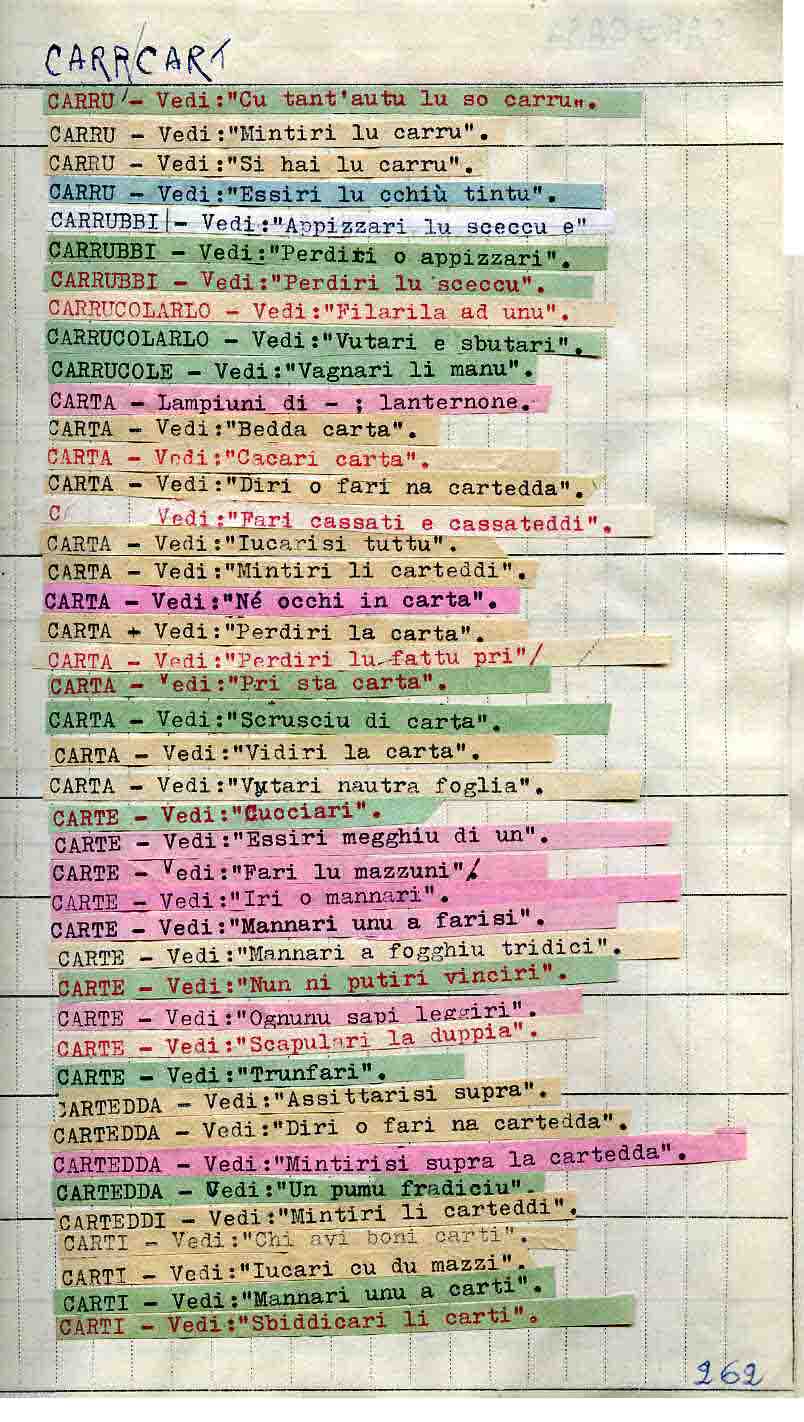 CARR/CART
CARRU - Vedi:"Cu tant'autu lu so carru".
CARRU - Vedi:"Mintiri lu carru".
CARRU - Vedi:"Si hai lu carru".
CARRU - Vedi:"Essiri lu cchiù tintu".
CARRUBBI - Vedi:"Appizzari lu sceccu e"
CARRUBBI - Vedi:"Perdiri o appizzari".
CARRUBBI - Vedi:"Perdiri lu sceccu".
CARRUCOLARLO - Vedi:"Filarila ad unu".
CARRUCOLARLO - Vedi:"Vutari e sbutari".
CARRUCOLE - Vedi:"Vagnari li manu".
CARTA - Lampiuni di - ; lanternone.
CARTA - Vedi:"Bedda carta".
CARTA - Vedi:"Cacari carta".
CARTA - Vedi:"Diri o fari na cartedda".
C Vedi:"Fari cassati e cassateddi".
CARTA - Vedi:"Iucarisi tuttu".
CARTA - Vedi:"Mintiri li carteddi".
CARTA - Vedi:"Né occhi in carta".
CARTA + Vedi:"Perdiri la carta".
CARTA - Vedi:"Perdiri lu fattu pri"/
CARTA - Vedi:"Pri sta carta".
CARTA - Vedi:"Scrusciu di carta".
CARTA - Vedi:"Vidiri la carta".
CARTA - Vedi:"Vutari nautra foglia".
CARTE - Vedi:"Cucciari".
CARTE - Vedi:"Essiri megghiu di un".
CARTE - Vedi:"Fari lu mazzuni"/.
CARTE - Vedi:"Iri o mannari".
CARTE - Vedi:"Mannari unu a farisi".
CARTE - Vedi:"Mannari a fogghiu tridici".
CARTE - Vedi:"Nun ni putiri vinciri".
CARTE - Vedi:"Ognunu sapi leggiri".
CARTE - Vedi:"Scapulari la duppia".
CARTE - Vedi:"Trunfari".
CARTEDDA - Vedi:"Assittarisi supra".
CARTEDDA - Vedi:"Diri o fari na cartedda".
CARTEDDA - Vedi:"Mintirisi supra la cartedda".
CARTEDDA - Vedi:"Un pumu fradiciu".
CARTEDDI - Vedi:"Mintiri li carteddi".
CARTI - Vedi:"Chi avi boni carti".
CARTI - Vedi:"Iucari cu du mazzi".
CARTI - Vedi:"Mannari unu a carti".
CARTI - Vedi:"Sbiddicari li carti".
262